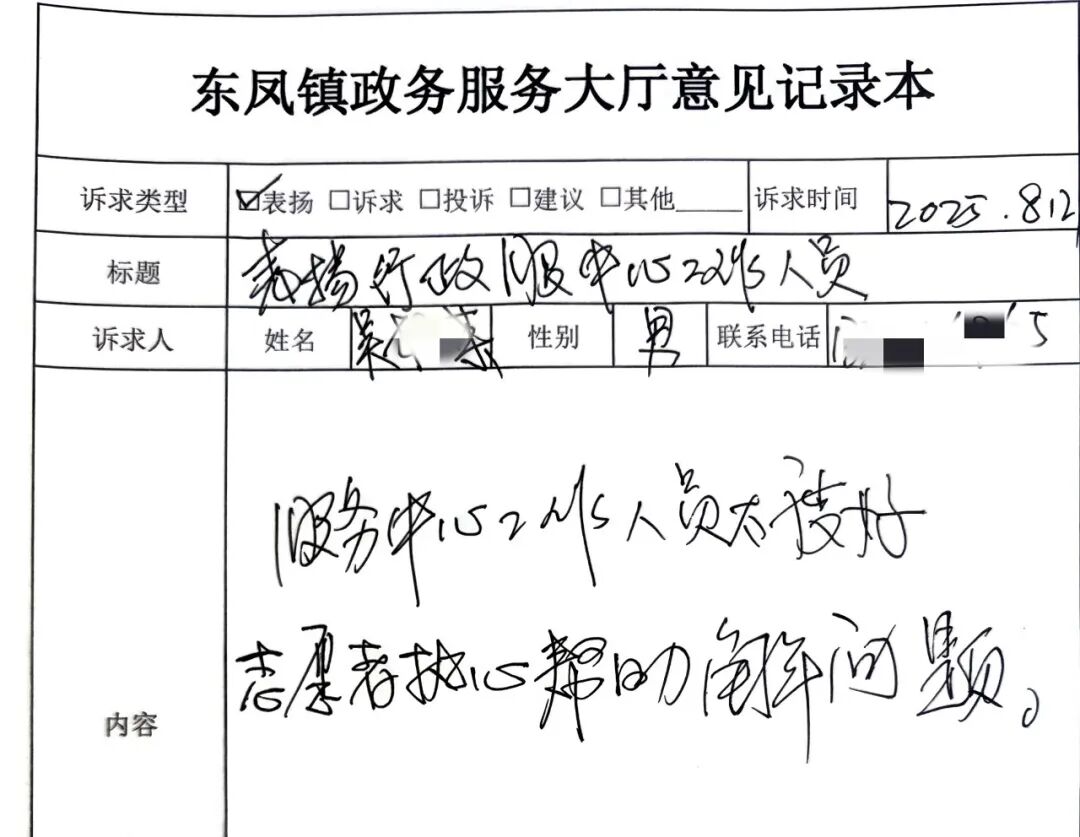 东凤镇政务服务大厅意见记录本
诉求类型 ☑表扬 □诉求 □投诉 □建议 □其他_____ 诉求时间 2025.8.12
标题 表扬行政服中心工作人员
诉求人 姓名 吴 性别 男 联系电话 5
内容
服务中心工作人员太度好
志愿者热心帮助解决问题。